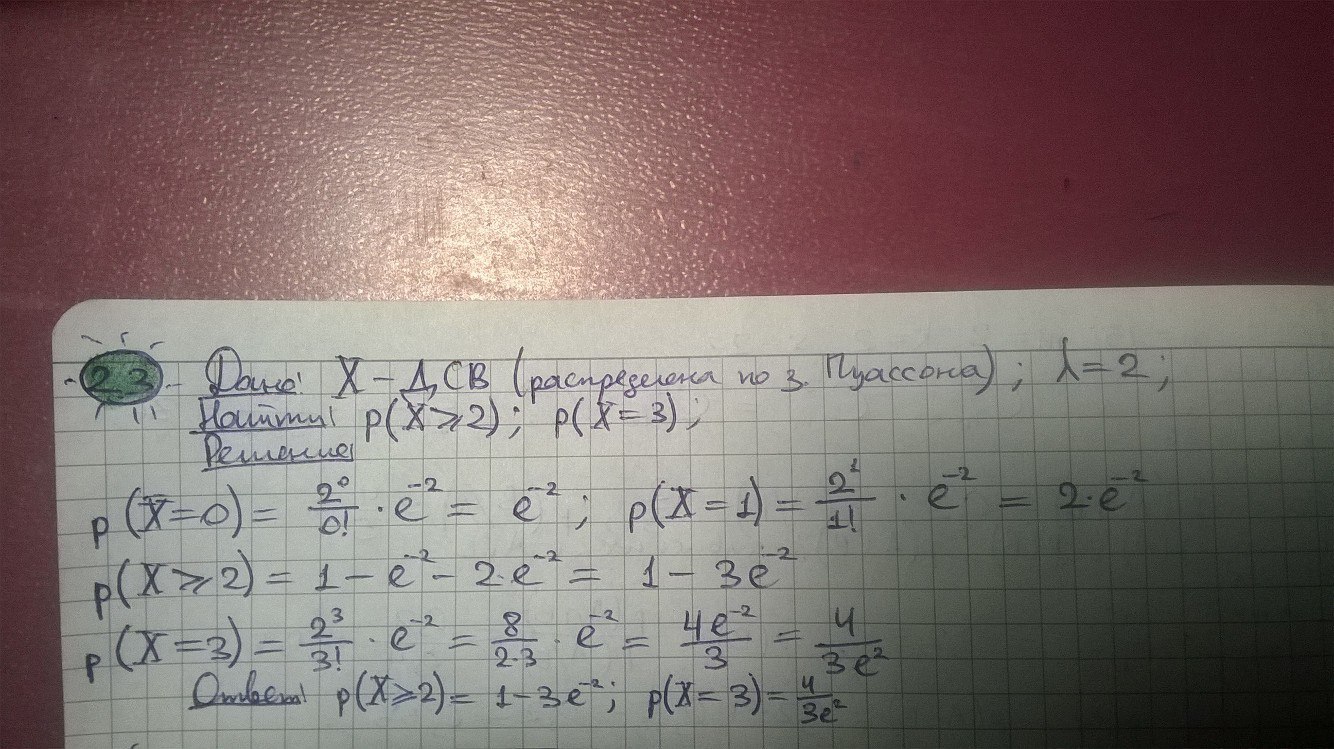 23 Дано: X – ДСВ (распределена по з. Пуассона); λ=2;
Найти: p(X⩾2); p(X=3);
Решение
p(X=0) = 2⁰/0! · e⁻² = e⁻²; p(X=1) = 2¹/1! · e⁻² = 2·e⁻²
p(X⩾2) = 1 – e⁻² – 2·e⁻² = 1 – 3e⁻²
p(X=3) = 2³/3! · e⁻² = 8/2·3 · e⁻² = 4e⁻²/3 = 4/3e²
Ответ: p(X⩾2) = 1–3e⁻²; p(X=3) = 4/3e²